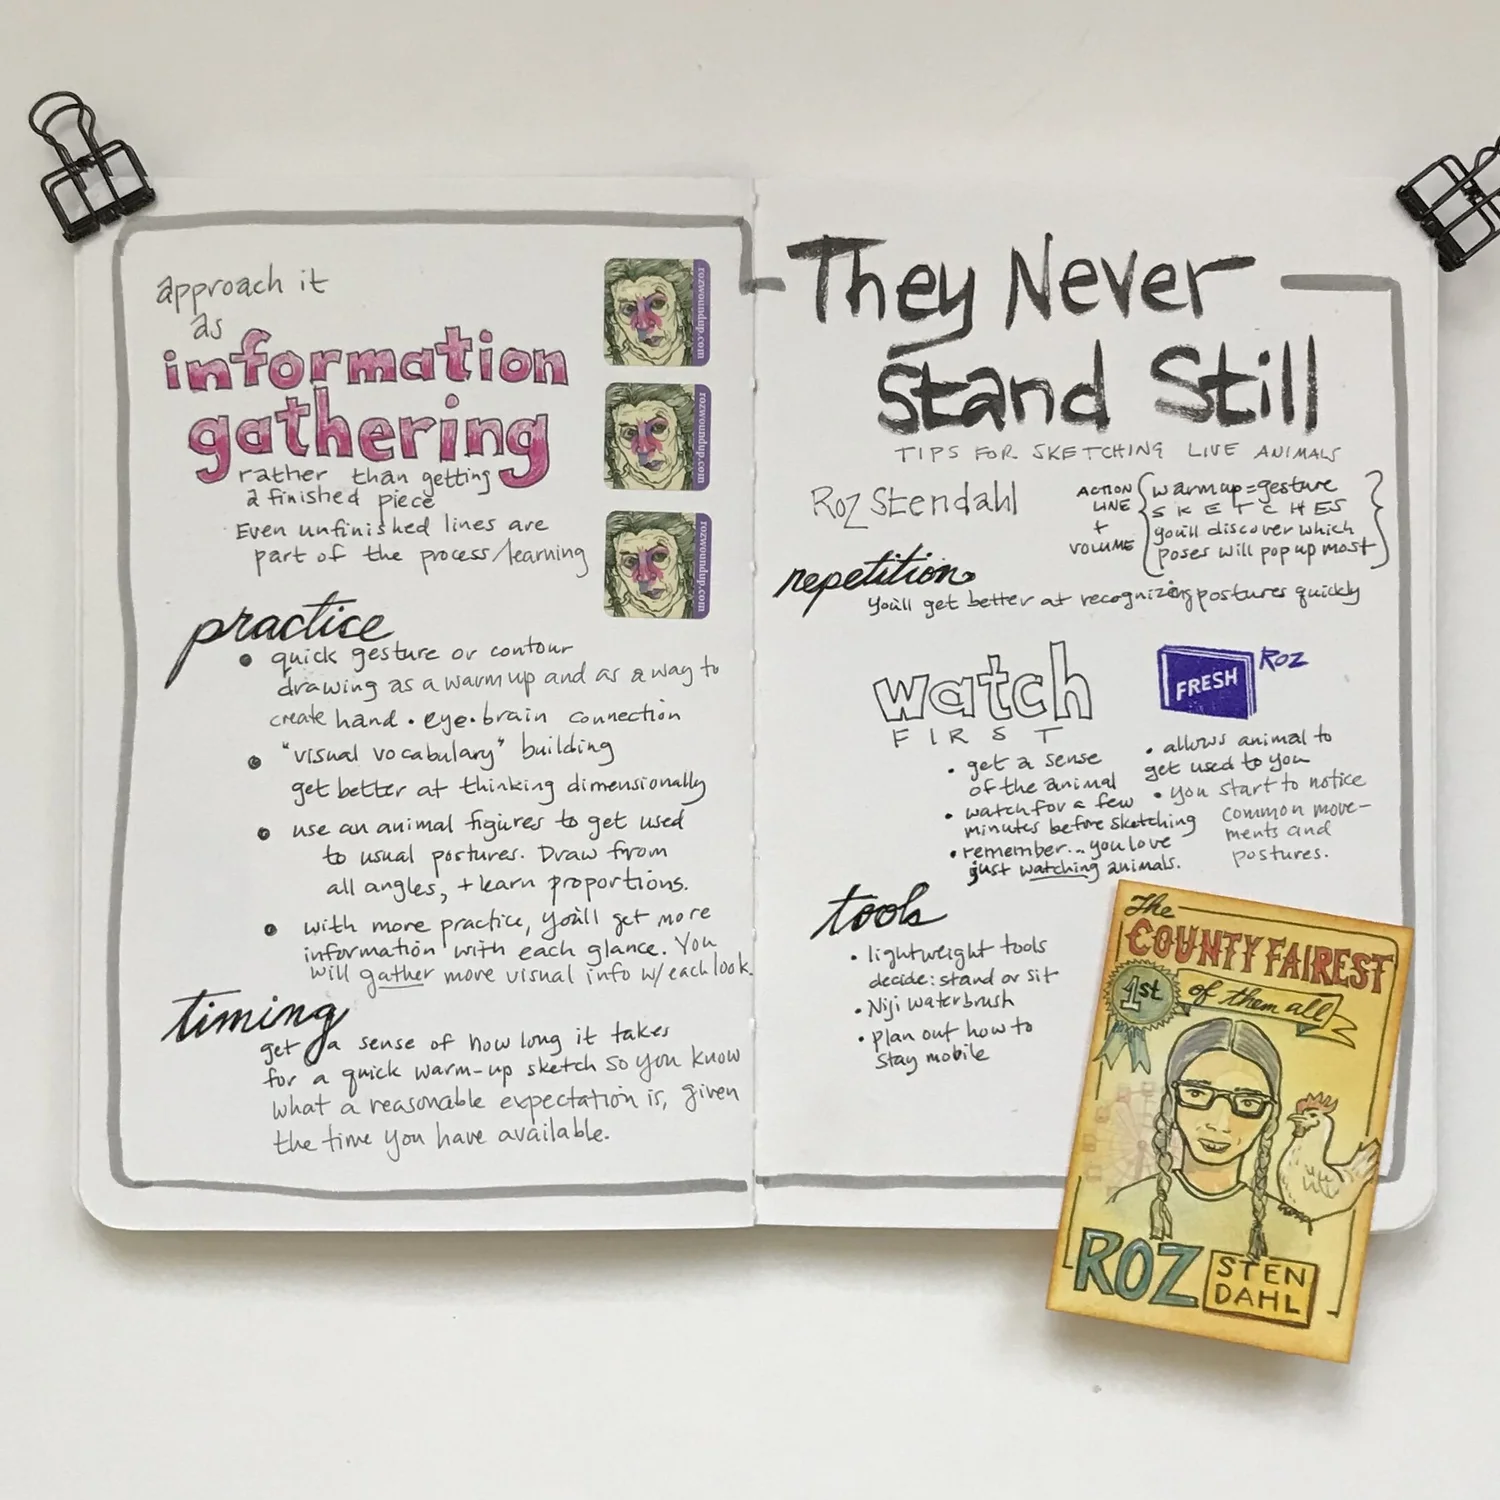 approach it
as
information
gathering
rather than getting
a finished piece
Even unfinished lines are
part of the process/learning
rozwoundup.com
rozwoundup.com
rozwoundup.com
practice
• quick gesture or contour
drawing as a warm up and as a way to
create hand • eye • brain connection
• "visual vocabulary" building
get better at thinking dimensionally
• use an animal figures to get used
to usual postures. Draw from
all angles, + learn proportions.
• with more practice, you'll get more
information with each glance. You
will gather more visual info w/ each look.
timing
get a sense of how long it takes
for a quick warm-up sketch so you know
what a reasonable expectation is, given
the time you have available.
They Never
Stand Still
TIPS FOR SKETCHING LIVE ANIMALS
Roz Stendahl
ACTION
LINE
+
VOLUME
warmup=gesture
SKETCHES
you'll discover which
poses will pop up most
repetition
You'll get better at recognizing postures quickly
watch
FIRST
FRESH
Roz
• get a sense
of the animal
• watch for a few
minutes before sketching
• remember... you love
just watching animals.
• allows animal to
get used to you
• you start to notice
common move-
ments and
postures.
tools
• lightweight tools
decide: stand or sit
• Niji waterbrush
• plan out how to
stay mobile
The
COUNTY FAIREST
1st
of them all
ROZ
STEN
DAHL